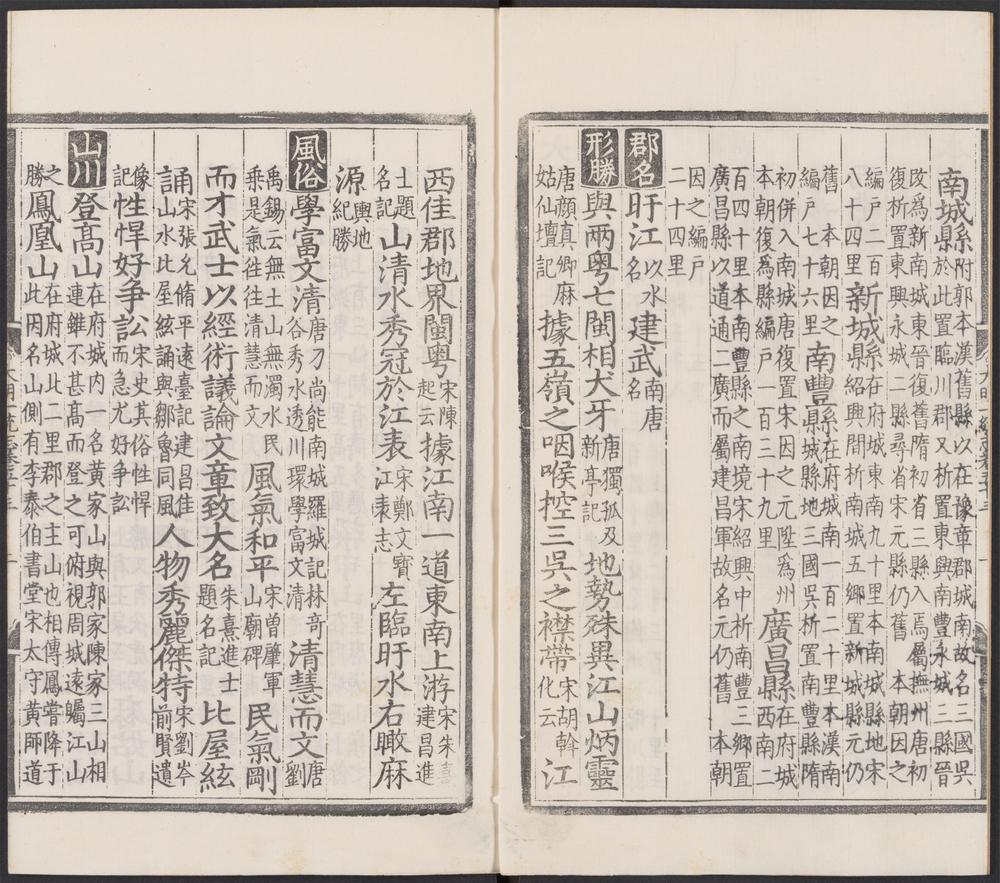 南城縣附郭本漢舊縣以在豫章郡城南故名三國吳於此置臨川郡又析置東興南豐永城三縣晉
改爲新南城東晉復舊隋初省三縣入焉屬撫州唐初復析置東興永城二縣尋省宋元縣仍舊 本朝因之
編戶二百八十四里 新城縣在府城東南九十里本南城縣地宋紹興間析南城五鄉置新城縣元仍
舊 本朝因之編戶七十六里 南豐縣在府城南一百二十里本漢南城縣地三國吳析置南豐縣隋
初併入南城唐復置宋因之元陞爲州本朝復爲縣編戶一百三十九里 廣昌縣在府城西南二
百四十里本南豐縣之南境宋紹興中析南豐三鄉置廣昌縣以道通二廣而屬建昌軍故名元仍舊 本朝
因之編戶二十四里
郡名 盱江以水名 建武南唐名
形勝 與兩粵七閩相犬牙唐獨孤及新亭記 地勢殊異江山炳靈
唐顏真卿麻姑仙壇記 據五嶺之咽喉控三吳之襟帶宋胡幹化云 江
西佳郡地界閩粵宋陳起云 據江南一道東南上游宋朱熹建昌進
士題名記 山清水秀冠於江表宋鄭文寶江表志 左臨盱水右瞰麻
源輿地紀勝
風俗 學富文清唐刁尚能南城羅城記林奇谷秀水透川環學富文清 清慧而文唐劉
禹錫云無土山無濁水民乘是氣往往清慧而文 風氣和平宋曾肇軍山廟碑 民氣剛
而才武士以經術議論文章致大名朱熹進士題名記 比屋絃
誦宋張允脩平遠臺記建昌佳山水比屋絃誦與鄒魯同風 人物秀麗傑特宋劉岑前賢遺
像記 性悍好爭訟宋史其俗性悍而急尤好爭訟
山川 登高山在府城內一名黃家山與郭家陳家三山相連雖不甚高而登之可俯視周城遠矚江山
之勝 鳳凰山在府城北二里郡之主山也相傳鳳嘗降于此因名山側有李泰伯書堂宋太守黃師道